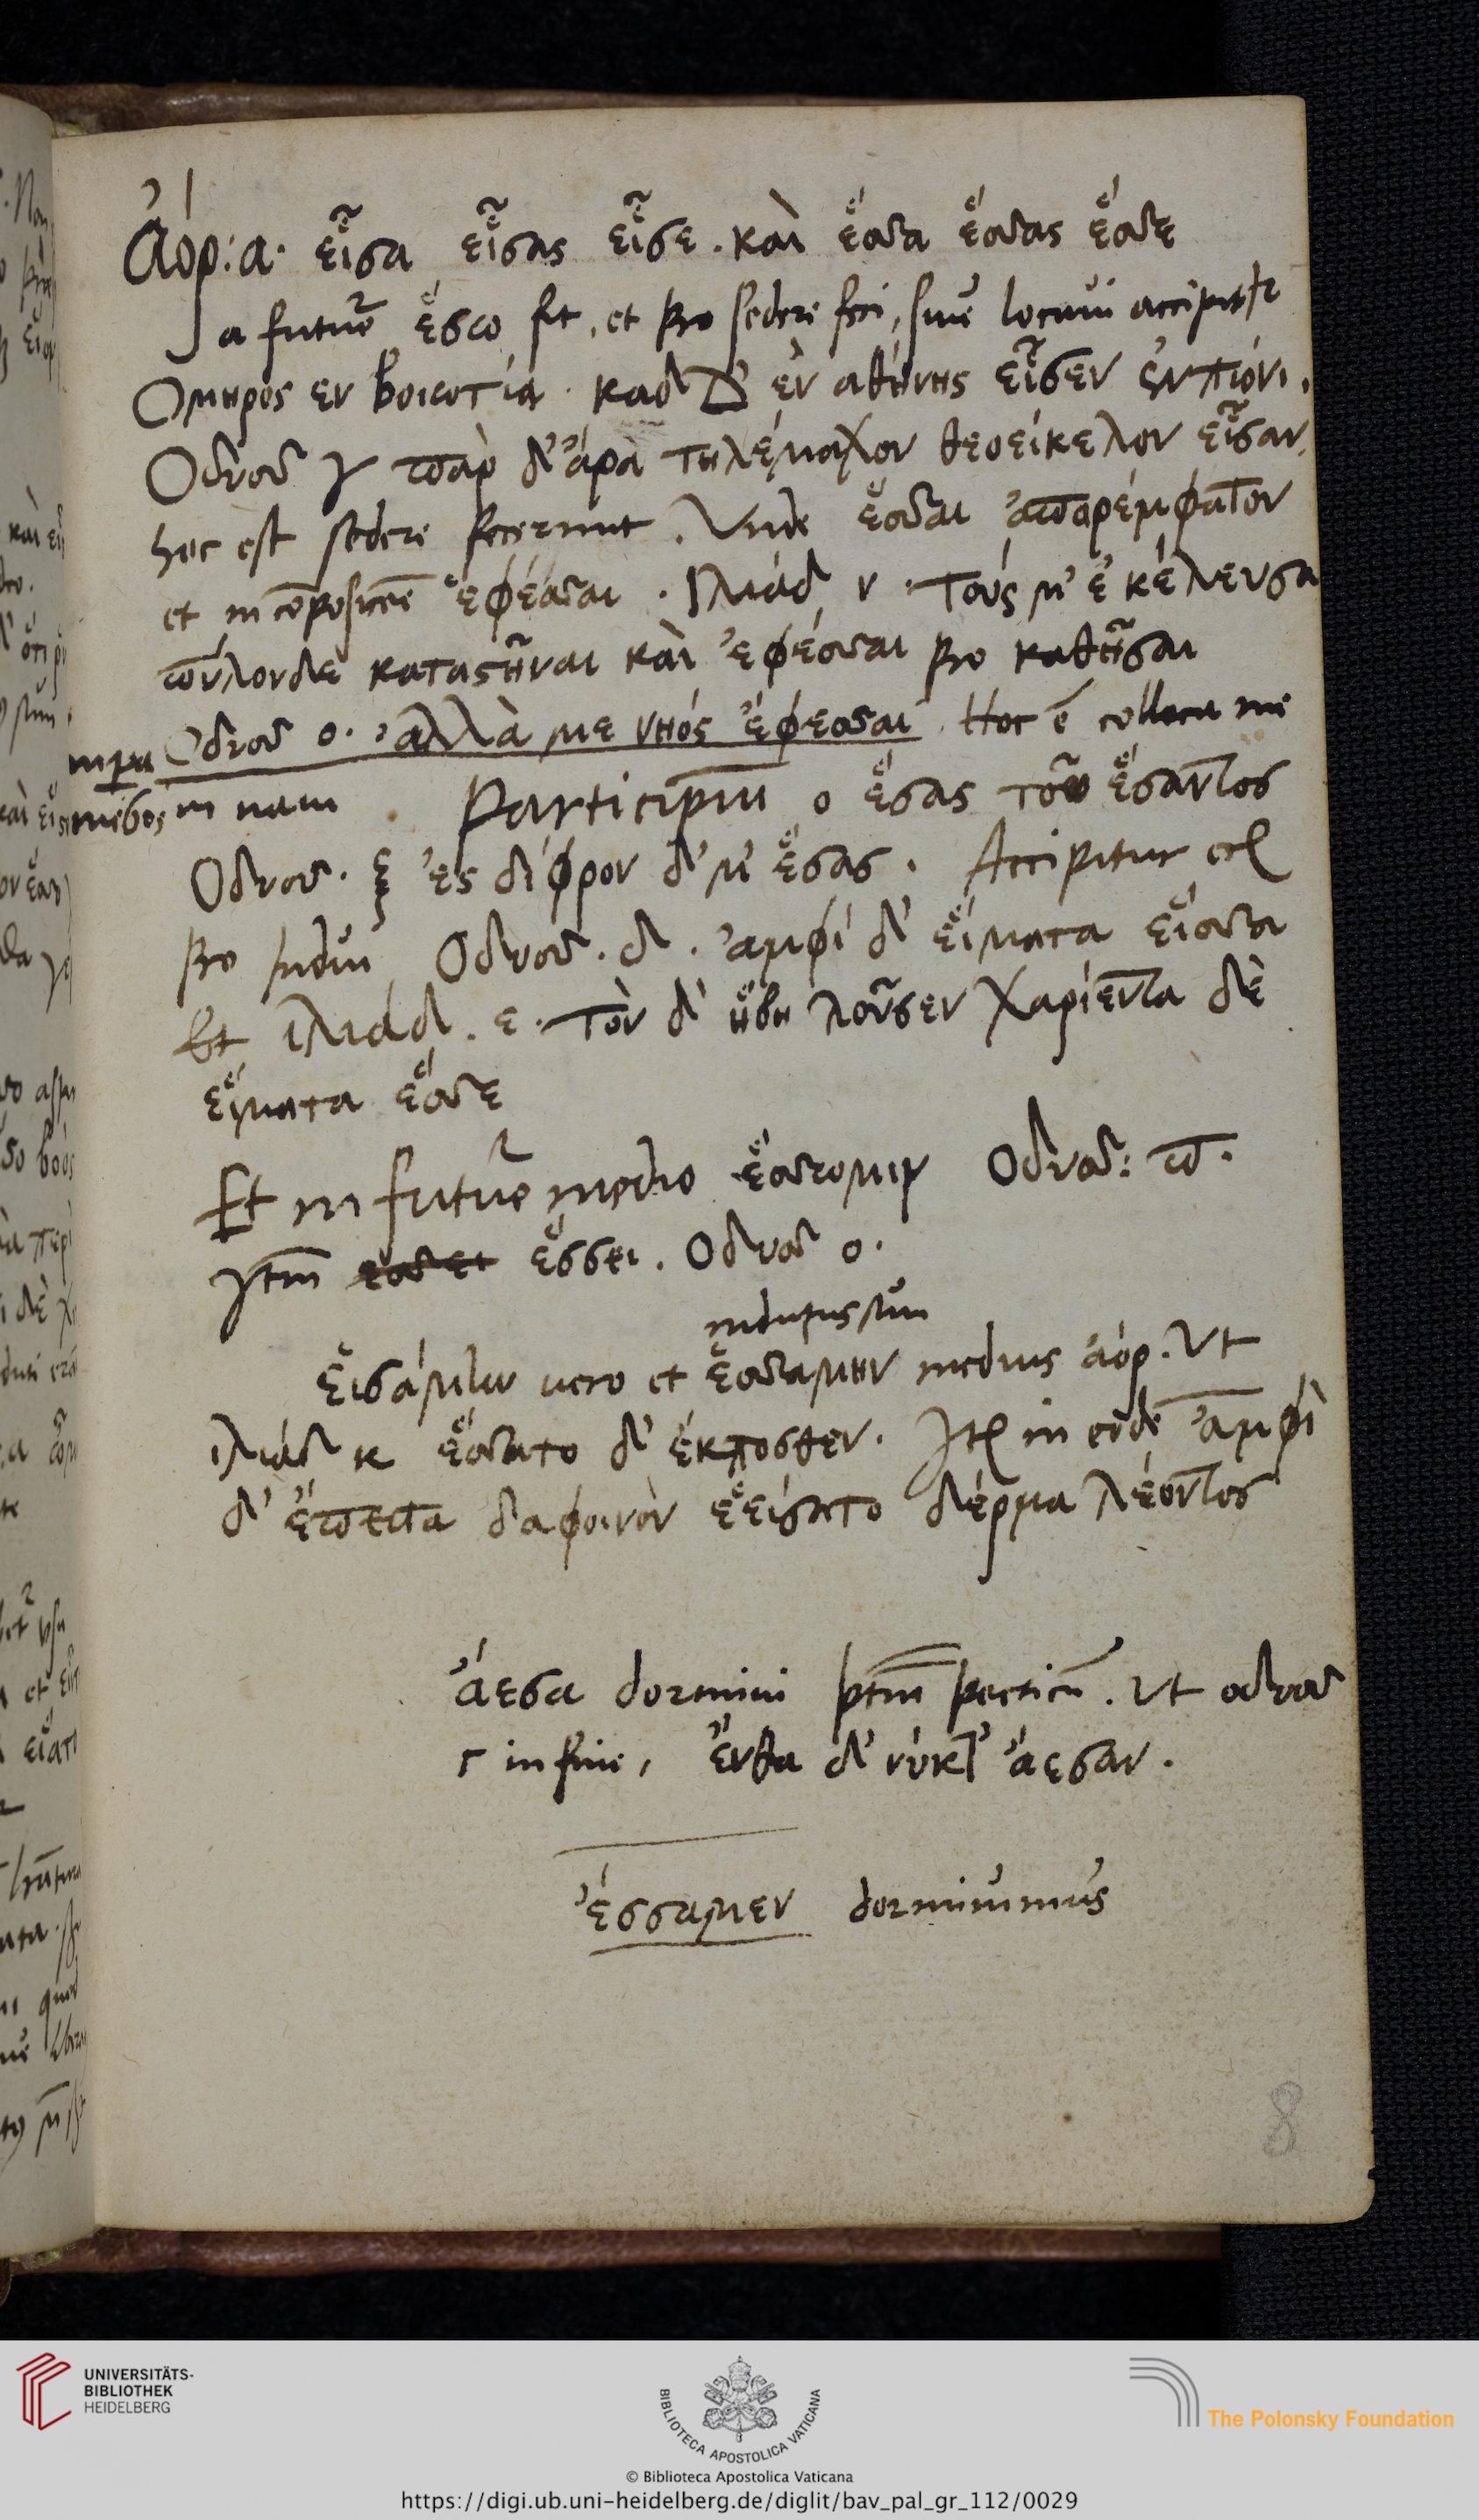 Ἀόρ. α. εἷσα εἷσας εἷσε. καὶ ἕσσα ἕσσας ἕσσε
a futuro ἕσω fit, et pro sedere feci, siue locaui accipitur
Ομηρος εν βοιωτία. καδ δ' ἐν αθήνης εἷσεν
Οδυσσ γ παρ δ' ἄρα τηλέμαχον θεοείκελον εἷσαν,
hoc est sedere fecerunt. Vnde ἕσσαι ἀπαρέμφατον
et in compositione ἐφέσσαι. Ιλιάδ ν. Τούς μ' ἐκέλευσα
πύλονδε καταστῆναι καὶ ἐφέσσαι pro καθῆσαι
Οδυσσ ο. ἀλλὰ με νηός ἐφεσσαι. Hoc ē colloca me
in naui. Participium ο ἕσας τοῦ ἕσαντος
Οδυσσ. ξ ἐς δίφρον δ' μ' ἕσας. Accipitur
pro indui Οδυσσ. δ. ἀμφί δ' εἵματα εἵσσα
Et ιλιαδ. ε. Τὸν δ' ἥβη λοῦσεν χαρίεντα δὲ
εἵματα ἕσσε
Et in futuro medio Οδυσσ: π.
ἕσσει. Οδυσσ ο.
indutus sum
Εἱσάμην uero et ἑσσαμην medius ἀόρ. Vt
ιλιάδ κ ἕσσατο δ' ἔκτοσθεν. in eodē ἀμφὶ
δ' ἔπειτα δαφοινὸν ἑείσατο δέρμα λέοντος
ἄεσα dormiui Vt οδυσσ
in fine, ἔνθα δ' νύκτ' ἄεσαν.
ἔσσαμεν dormiuimus
8
UNIVERSITÄTS-
BIBLIOTHEK
HEIDELBERG
BIBLIOTECA APOSTOLICA VATICANA
The Polonsky Foundation
© Biblioteca Apostolica Vaticana
https://digi.ub.uni-heidelberg.de/diglit/bav_pal_gr_112/0029